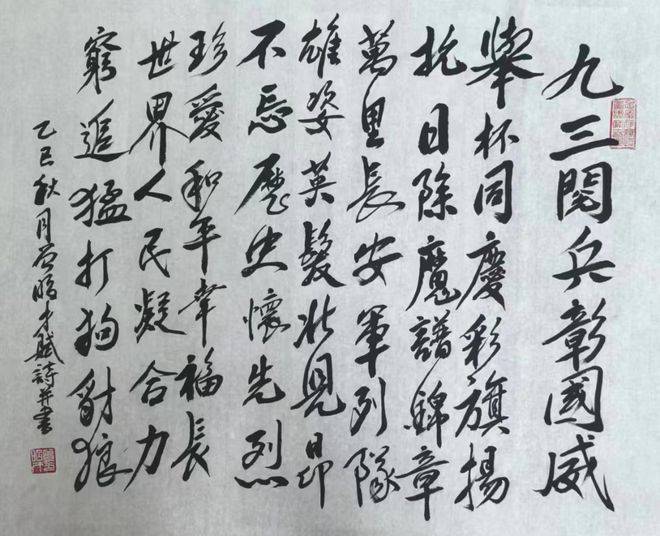 九三閱兵彰國威
舉杯同慶彩旗揚
抗日除魔譜錦章
萬里長安軍列隊
雄姿英髮壯見昂
不忘歷史懷先烈
珍愛和平幸福長
世界人民凝合力
窮追猛打狗豺狼
乙巳秋月賦詩并書